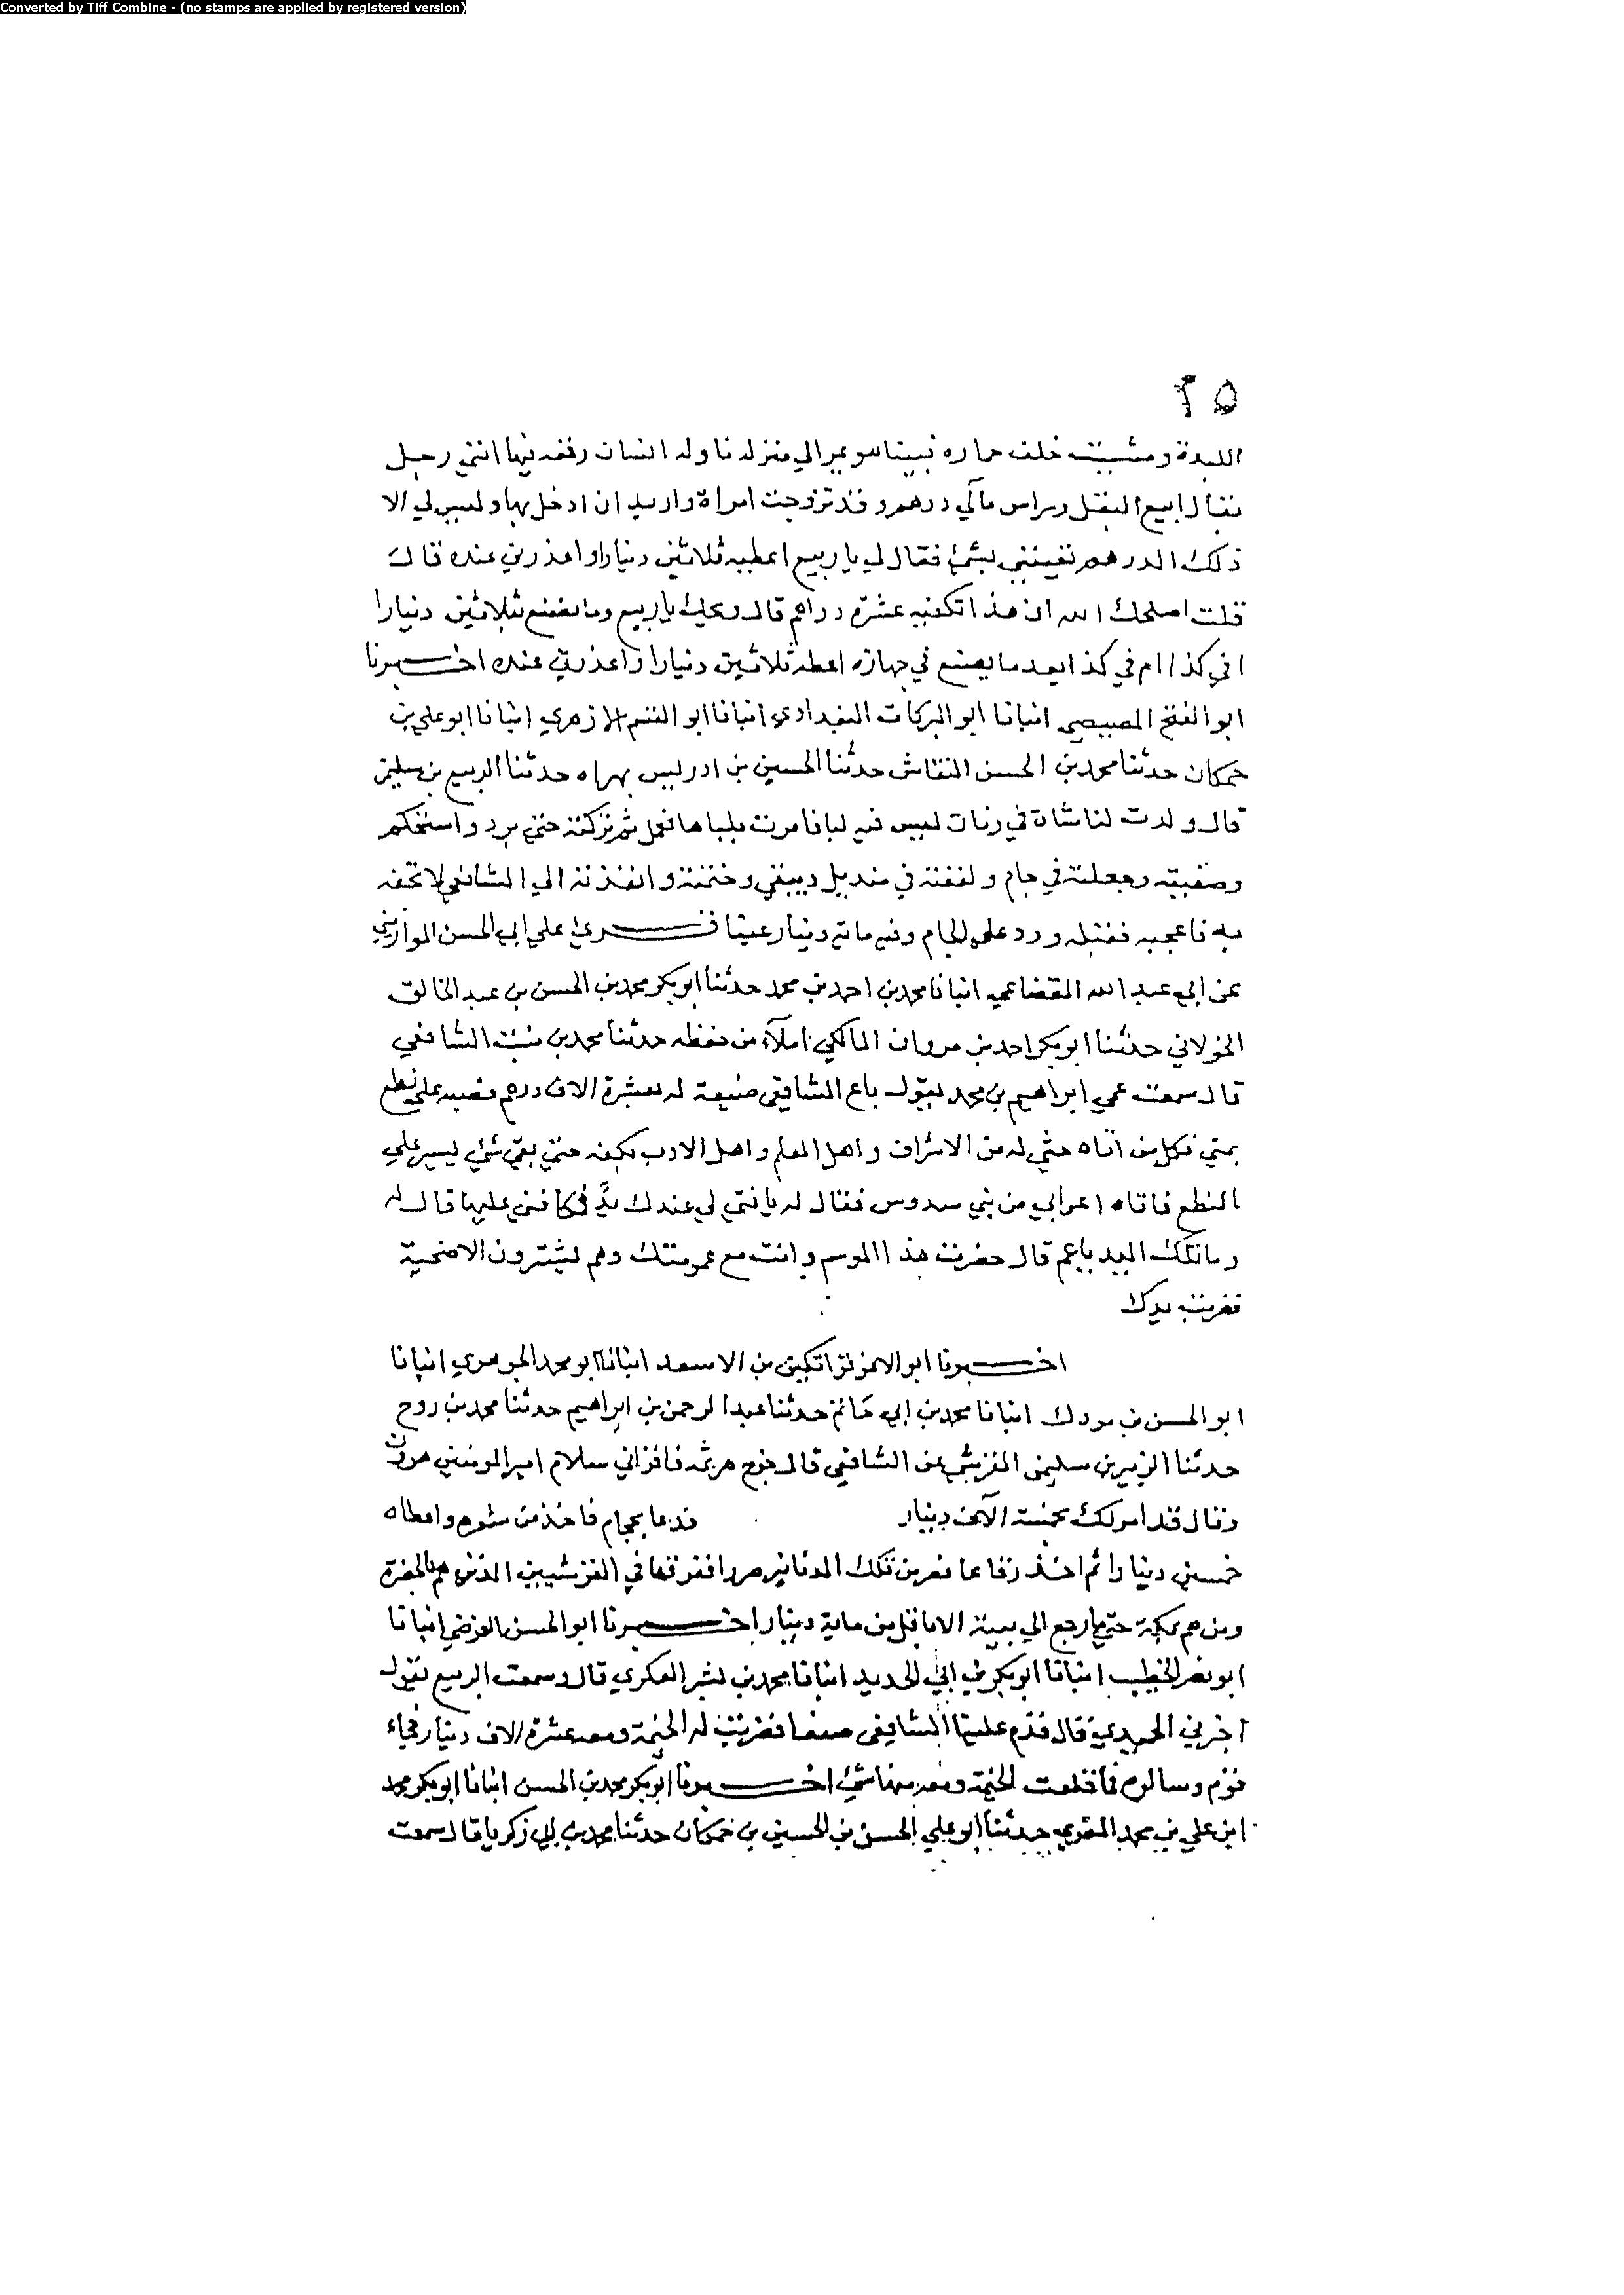 Converted by Tiff Combine - (no stamps are applied by registered version)
٢٥
اللبدة ومشيت خلف حماره فبينا هو يمر الى منزله ناوله انسان رقعه فيها انني رجل
بقال ابيع البقل وراس مالي درهم وقد تزوجت امراة واريد ان ادخل بها وليس لي الا
ذلك الدرهم تعينني بشئ فقال لي يا ربيع اعطيه ثلاثين دينارا واعذرني عنده قال
قلت اصلحك الله ان هذا تكفيه عشرة دراهم قال ويحك يا ربيع وما يصنع بثلاثين دنيارا
افي كذا ام في كذا يعد ما يصنع في جهازه اعطه ثلاثين دنيارا واعذرني عنده اخبرنا
ابو الفتح المصيصي انبانا ابو البركات البغدادي انبانا ابو القسم الازهري انبانا ابو علي بن
حمكان حدثنا محمد بن الحسن النقاش حدثنا الحسين بن ادريس بهراه حدثنا الربيع بن سليمن
قال ولدت لنا شاة في زمان ليس فيه لبا فامرت بلباها فعمل ثم تركته حتى برد واستحكم
وجعلته في جام ولففته في منديل دبيقي وختمته وانفذته الي الشافعي لا تحفه
به فاعجبه فقبله ورد علي الجام وفيه ماية دينار عينا قرئ علي ابي الحسن الموازيني
عن ابي عبد الله القضاعي انبانا محمد بن احمد بن محمد حدثنا ابو بكر محمد بن الحسن بن عبد الخالق
الخولاني حدثنا ابو بكر احمد بن مروان المالكي املآء من حفظه حدثنا محمد بن بنت الشافعي
قال سمعت عمي ابراهيم بن محمد يقول باع الشافعي ضيعة له بعشرة الاف درهم فصبه علي نطع
بمني فكل من اتاه حثي له من الاشراف واهل العلم واهل الادب بكفه حتي بقي شئ يسير علي
النطع فاتاه اعرابي من بني سدوس فقال له يا فتي لي عندك يد فكافني عليها قال له
وما تلك اليد يا عم قال حضرت هذا الموسم وانت مع عمومتك وهم يشترون الاضحية
فضربت يدك
اخبرنا ابو الاعز قراتكين بن الاسعد انبانا ابو محمد الجوهري انبانا
ابو الحسن بن مردك انبانا محمد بن ابي حاتم حدثنا عبد الرحمن بن ابراهيم حدثنا محمد بن روح
حدثنا الزبير بن سليمن القرشي عن الشافعي قال خرج هرثمه فاقراني سلام امير المومنين هرون
وقال قد امر لك بخمسة الآف دينار فدعا بحجام فاخذ من شعره واعطاه
خمسين دنيارا ثم اخذ رقاعا فصر من تلك الدنانير صررا ففرقها في القرشيين الذين هم بالحضرة
ومن هم بمكة حتي ما رجع الي بيته الا باقل من ماية دينار اخبرنا ابو الحسن الفرضي انبانا
ابو نصر الخطيب انبانا ابو بكر بن ابي الحديد انبانا محمد بن بشر العكري قال وسمعت الربيع يقول
اخبرني الحميدي قال قدم علينا الشافعي صنعا فضربت له الخيمة ومعه عشرة الاف دينار فجاء
قوم وسالوه فما قلعت الخيمة ومعه منها شئ اخبرنا ابو بكر محمد بن الحسن انبانا ابو بكر محمد
ابن علي بن محمد المقري حدثنا ابو علي الحسن بن الحسين بن حمكان حدثنا محمد بن ابي زكريا قال سمعت